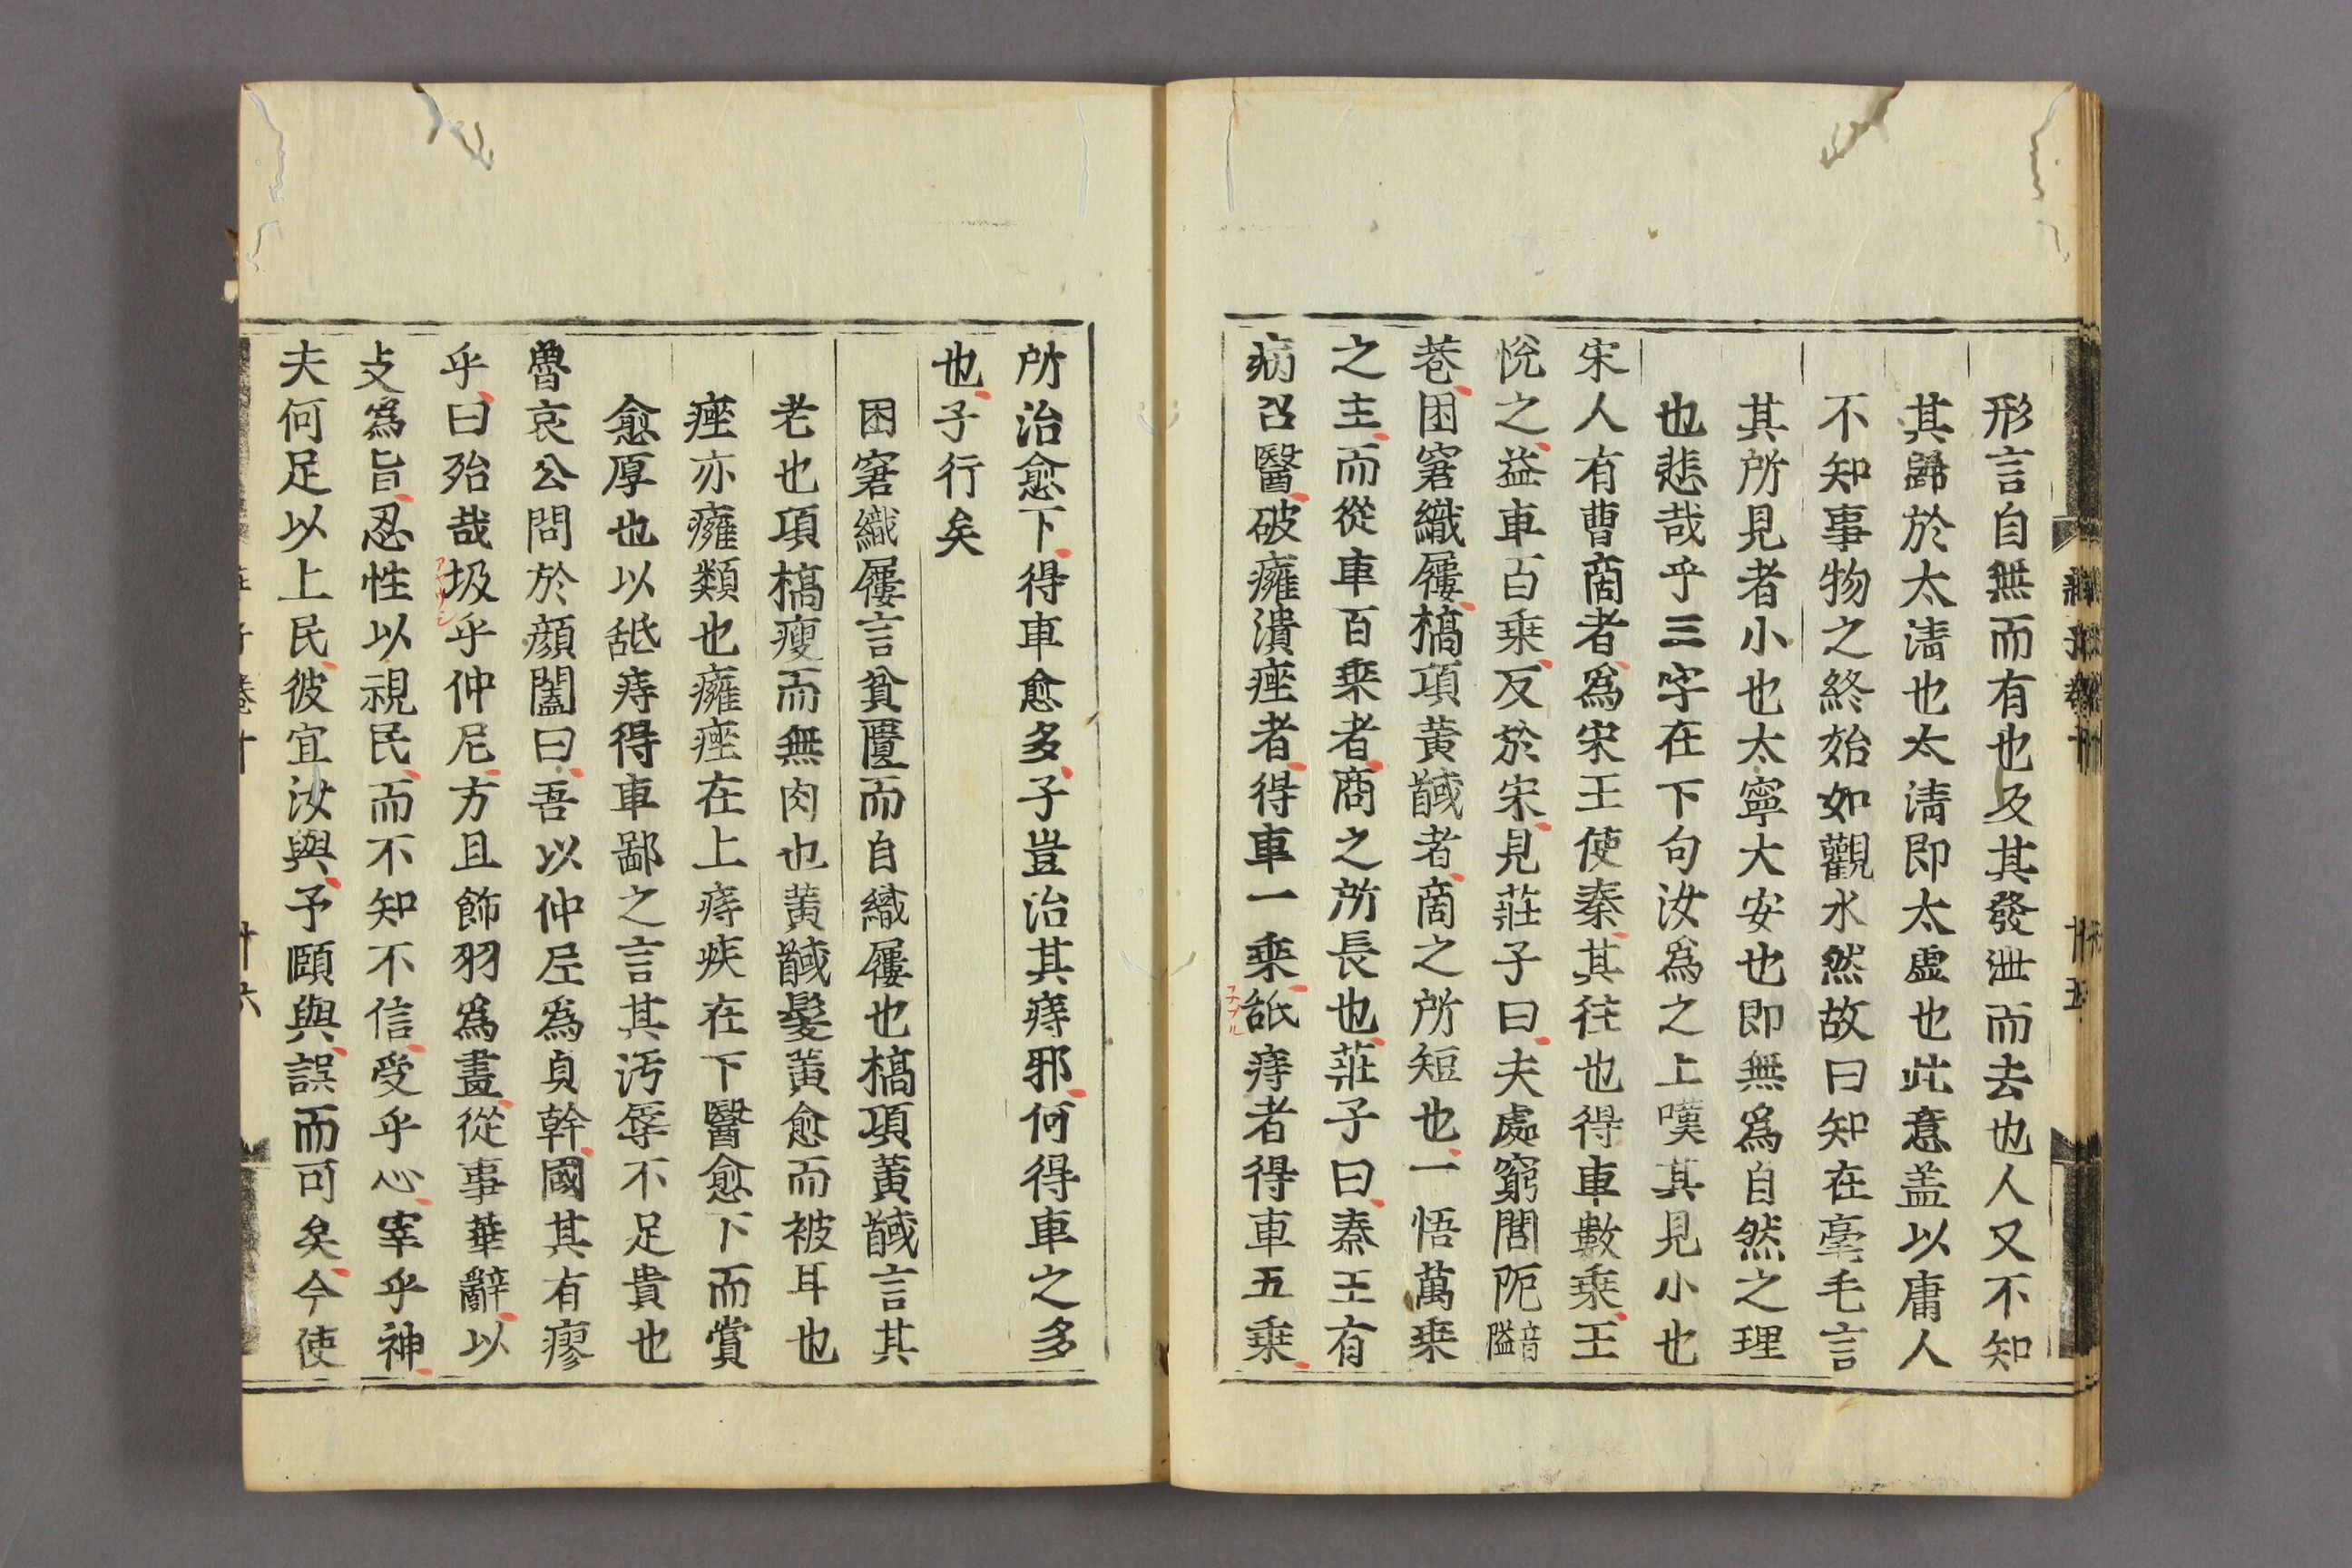 形言自無而有也及其發泄而去也人又不知
其歸於太清也太清即太虛也此意盖以庸人
不知事物之終始如觀水然故曰知在毫毛言
其所見者小也太寧大安也即無爲自然之理
也悲哉乎三字在下句汝爲之上嘆其見小也
宋人有曹商者爲宋王使秦其徃也得車數乗王
悅之益車百乗反於宋見莊子曰夫處窮閭阨音隘
巷困窘織屨槁項黃馘者商之所短也一悟萬乗
之主而從車百乗者商之所長也莊子曰秦王有
病召醫破癰潰痤者得車一乗舐痔者得車五乗
所治愈下得車愈多子豈治其痔邪何得車之多
也子行矣
困窘織屨言貧匱而自織屨也槁項黃馘言其
老也項槁瘦而無肉也黃馘髮黃愈而被耳也
痤亦癰類也癰痤在上痔疾在下醫愈下而賞
愈厚也以舐痔得車鄙之言其汚辱不足貴也
魯哀公問於顔闔曰吾以仲尼爲貞幹國其有瘳
乎曰殆哉圾乎仲尼方且飾羽爲畫從事華辭以
攴爲旨忍性以視民而不知不信受乎心宰乎神
夫何足以上民彼宜汝與予頤與誤而可矣今使